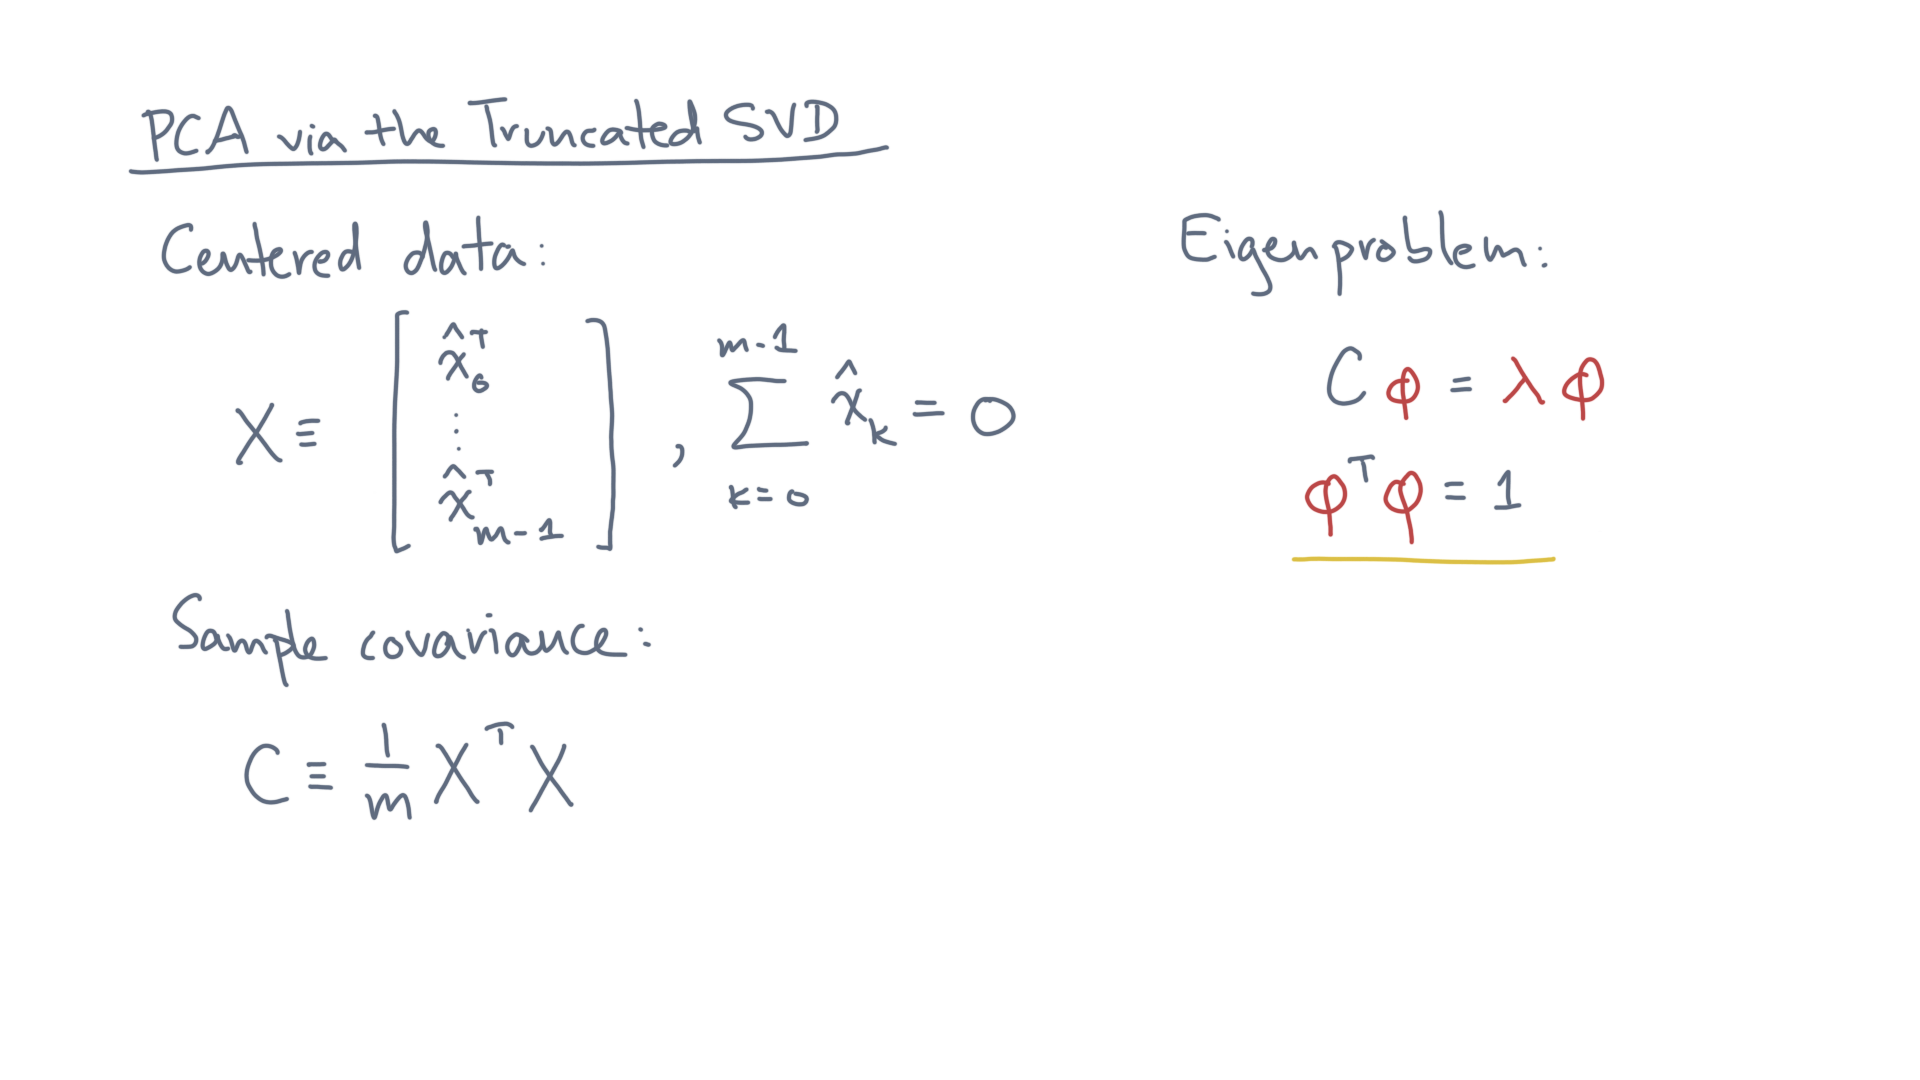 PCA via the Truncated SVD
Centered data:
X ≡ [ x̂₀ᵀ ⋮ x̂ₘ₋₁ᵀ ] , ∑_{k=0}^{m-1} x̂ₖ = 0
Sample covariance:
C ≡ 1/m Xᵀ X
Eigenproblem:
C φ = λ φ
φᵀ φ = 1